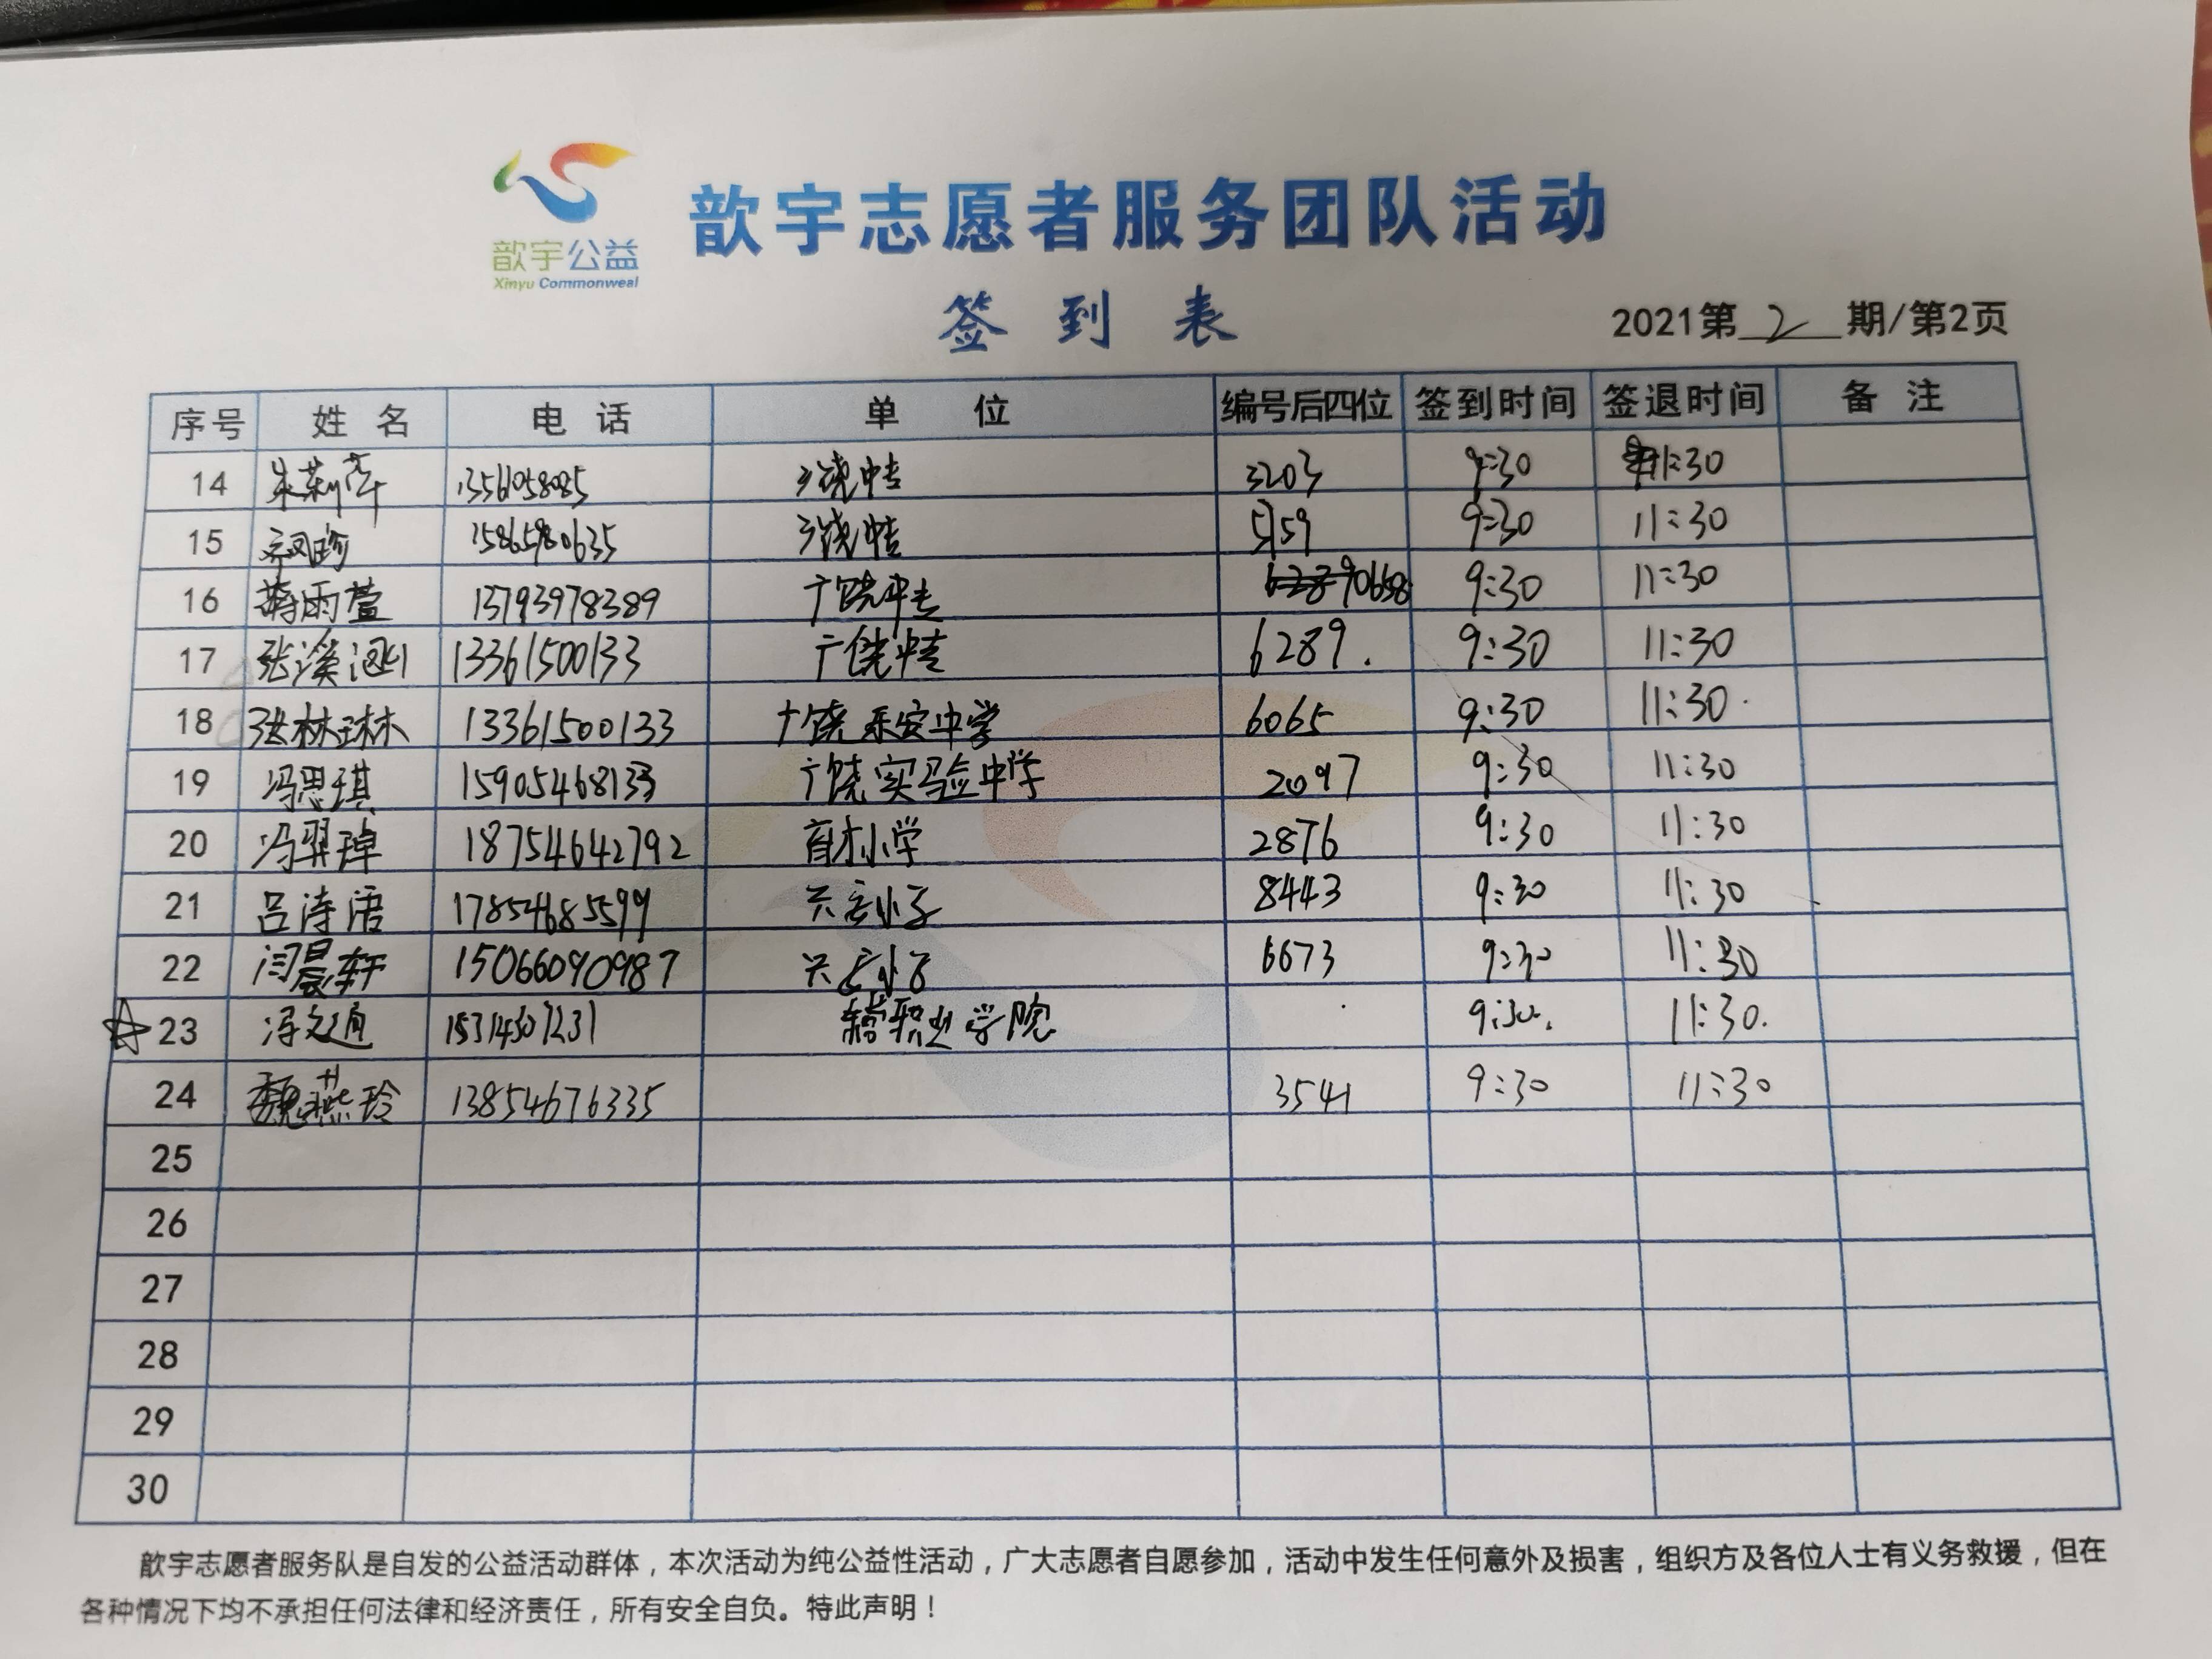 歆宇公益
Xinyu Commonweal
歆宇志愿者服务团队活动
签到表
2021第2期/第2页
序号 姓名 电话 单位 编号后四位 签到时间 签退时间 备注
14 朱莉萍 广饶中专 3203 9:30 11:30
15 15865980635 广饶中专 5159 9:30 11:30
16 蒋雨萱 13793978389 广饶中专 0658 9:30 11:30
17 张溪 13361500133 广饶中专 6289. 9:30 11:30
18 张林琳 13361500133 广饶乐安中学 6065 9:30 11:30
19 冯思琪 15905468133 广饶实验中学 2097 9:30 11:30
20 冯羿璋 18754642792 育才小学 2876 9:30 11:30
21 吕诗语 17854685599 小学 8443 9:30 11:30
22 闫晨轩 15066090987 小学 6673 9:30 11:30
23 冯文通 职业学院 9:30. 11:30.
24 魏燕玲 13854676335 3541 9:30 11:30
25
26
27
28
29
30
歆宇志愿者服务队是自发的公益活动群体，本次活动为纯公益性活动，广大志愿者自愿参加，活动中发生任何意外及损害，组织方及各位人士有义务救援，但在
各种情况下均不承担任何法律和经济责任，所有安全自负。特此声明！